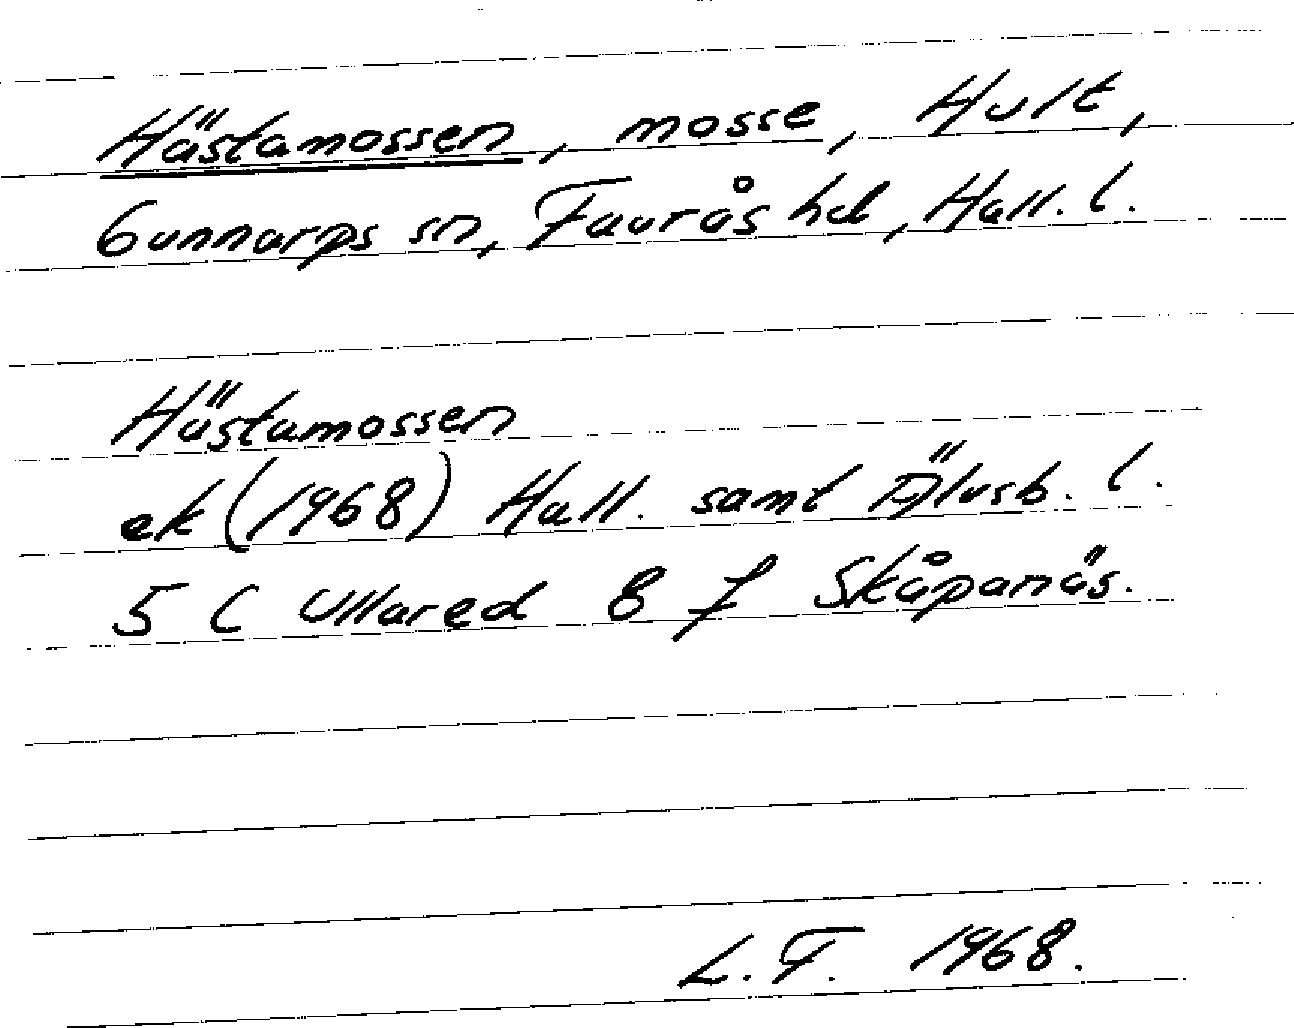 Hästamossen, mosse, Hult,
Gunnarps sn, Faurås hd, Hall. l.
Hästamossen
ek (1968) Hall. samt Älvsb. l.
5 C Ullared 8 f Skåpanäs.
L.F. 1968.